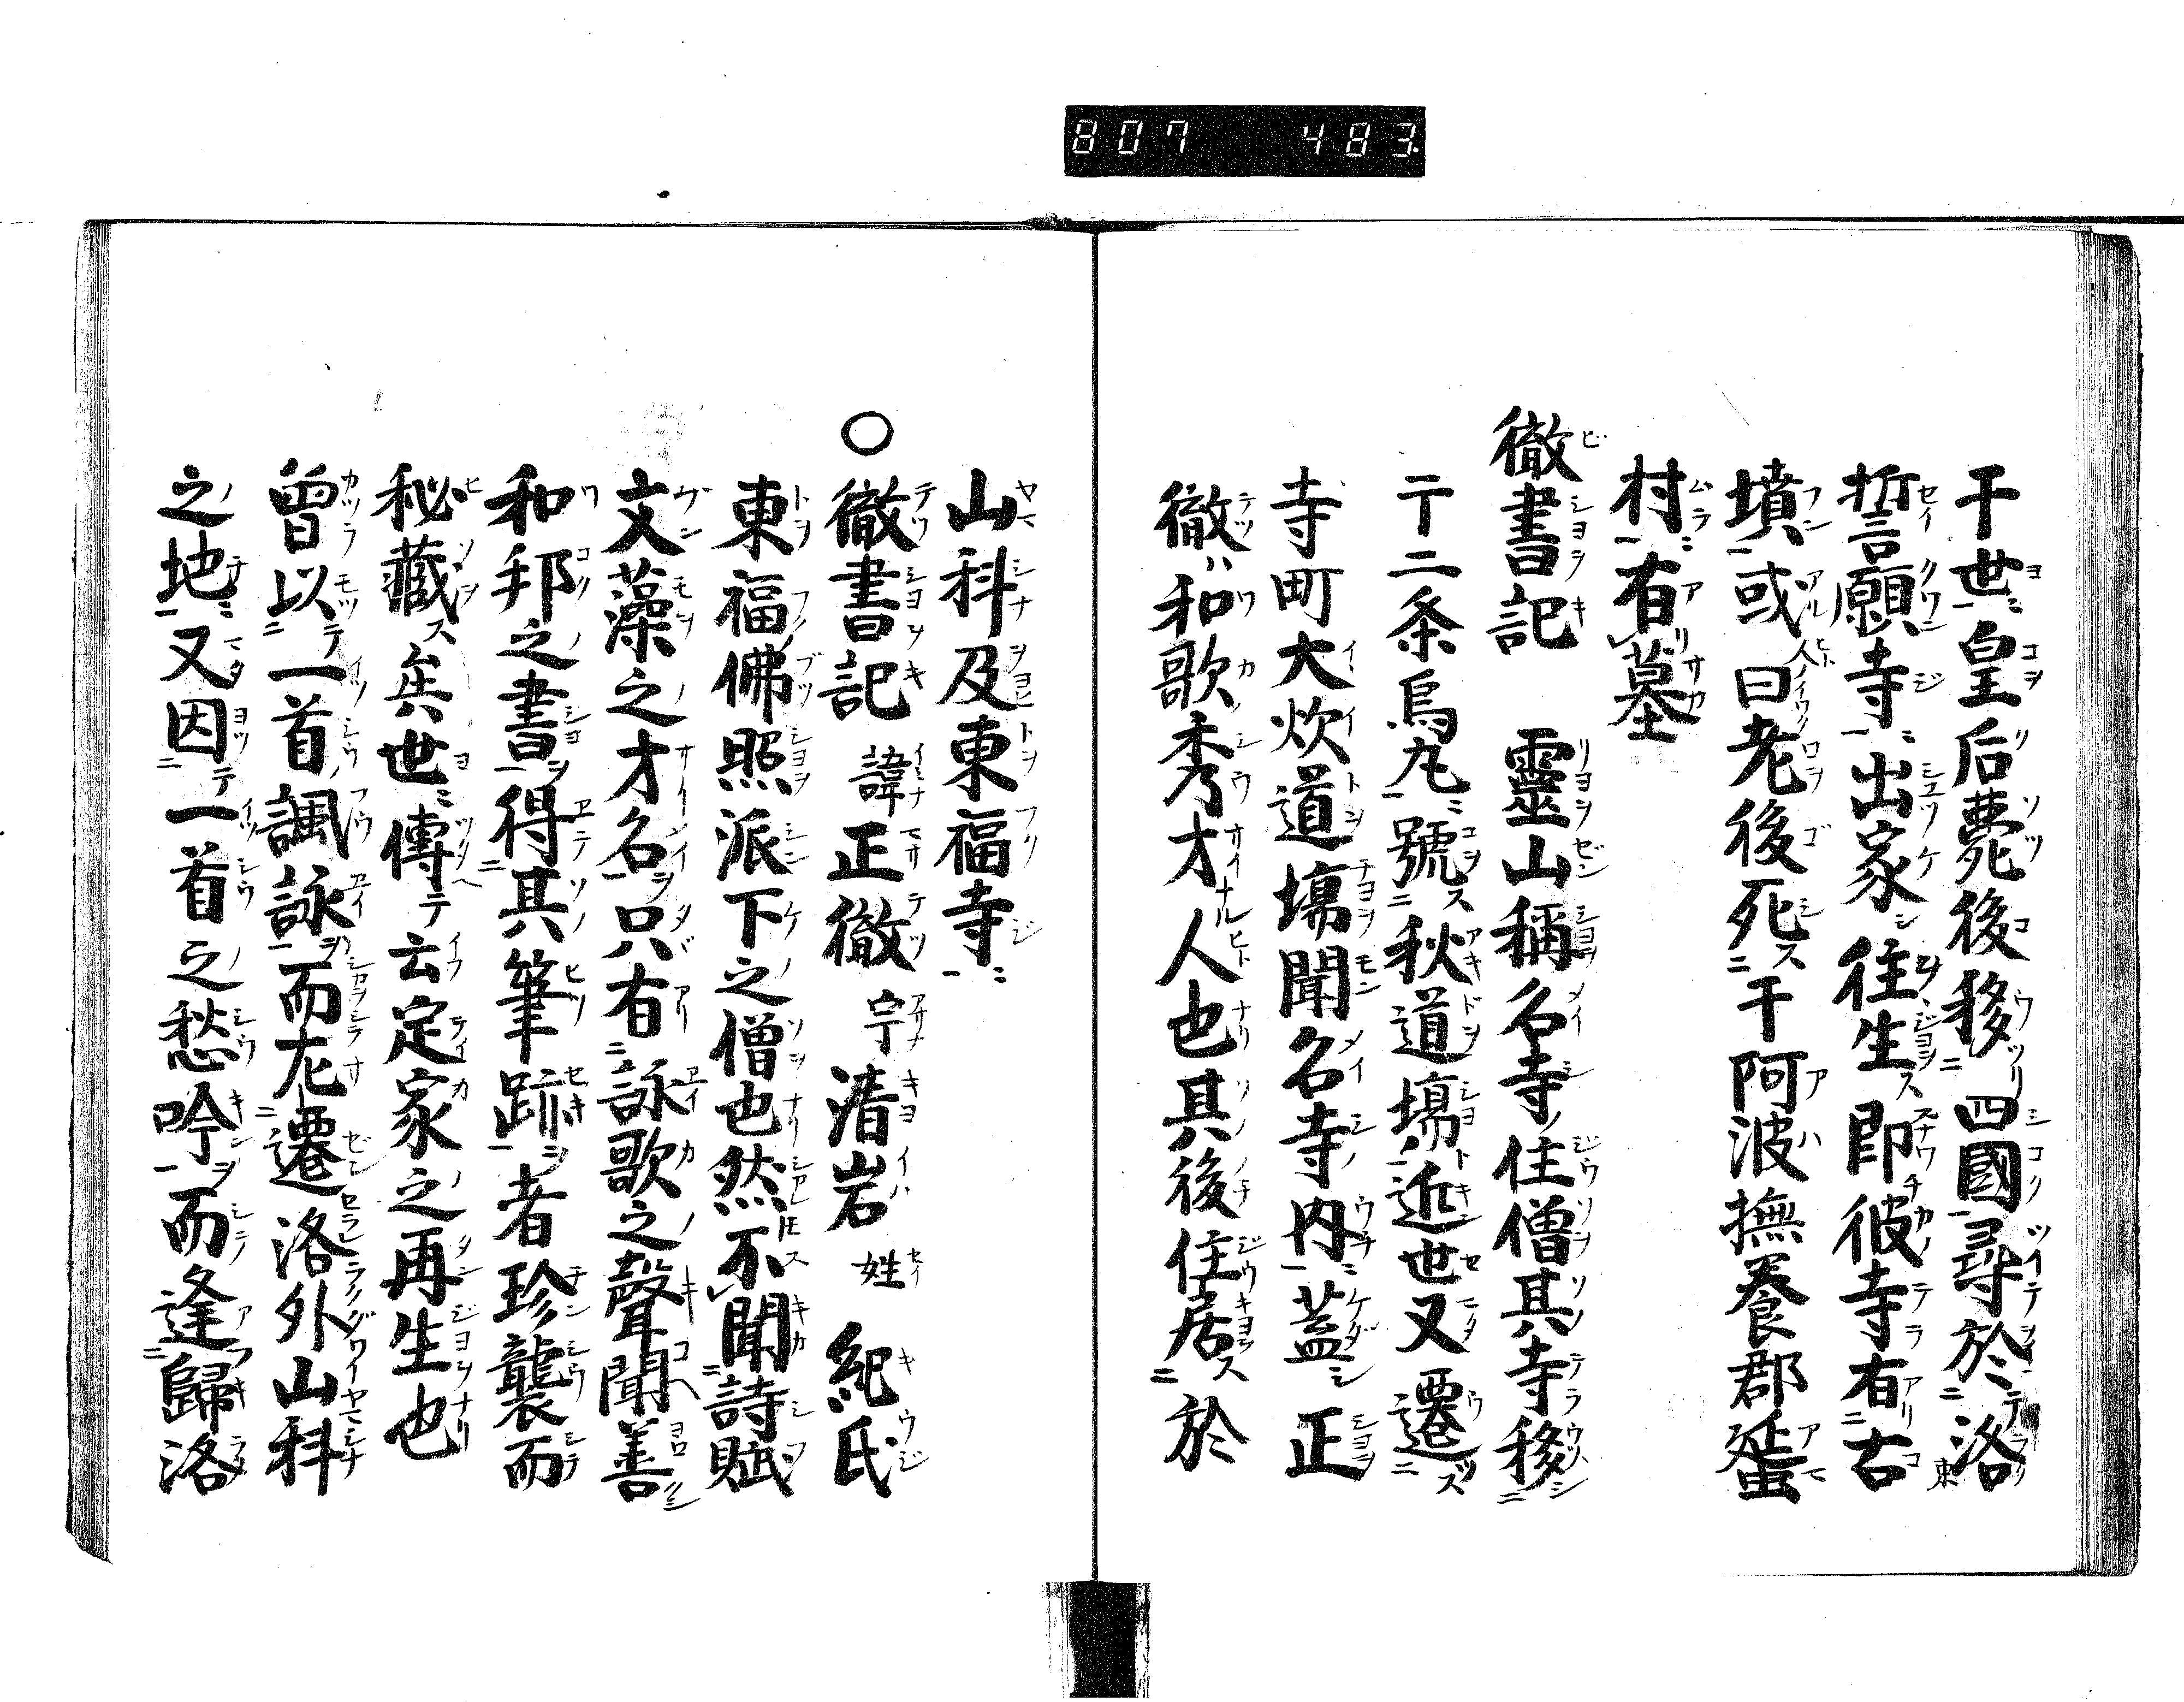 807 483
干世皇后薨後移四國尋於洛
東
誓願寺出家往生即彼寺有古
墳或人曰老後死干阿波撫養郡蜑
村有墓
徹書記 靈山稱名寺住僧其寺移
于二条烏丸號秋道場近世又遷
寺町大炊道場聞名寺内蓋正
徹ハ和歌秀才人也其後住居於
山科及東福寺
○徹書記 諱正徹 字清岩 姓紀氏
東福佛照派下之僧也然不聞詩賦
文藻之才名只有詠歌之聲聞善
和邦之書得其筆跡者珍襲而
秘藏矣世傳云定家之再生也
曾以一首諷詠而左遷洛外山科
之地又因一首之愁吟而逢歸洛